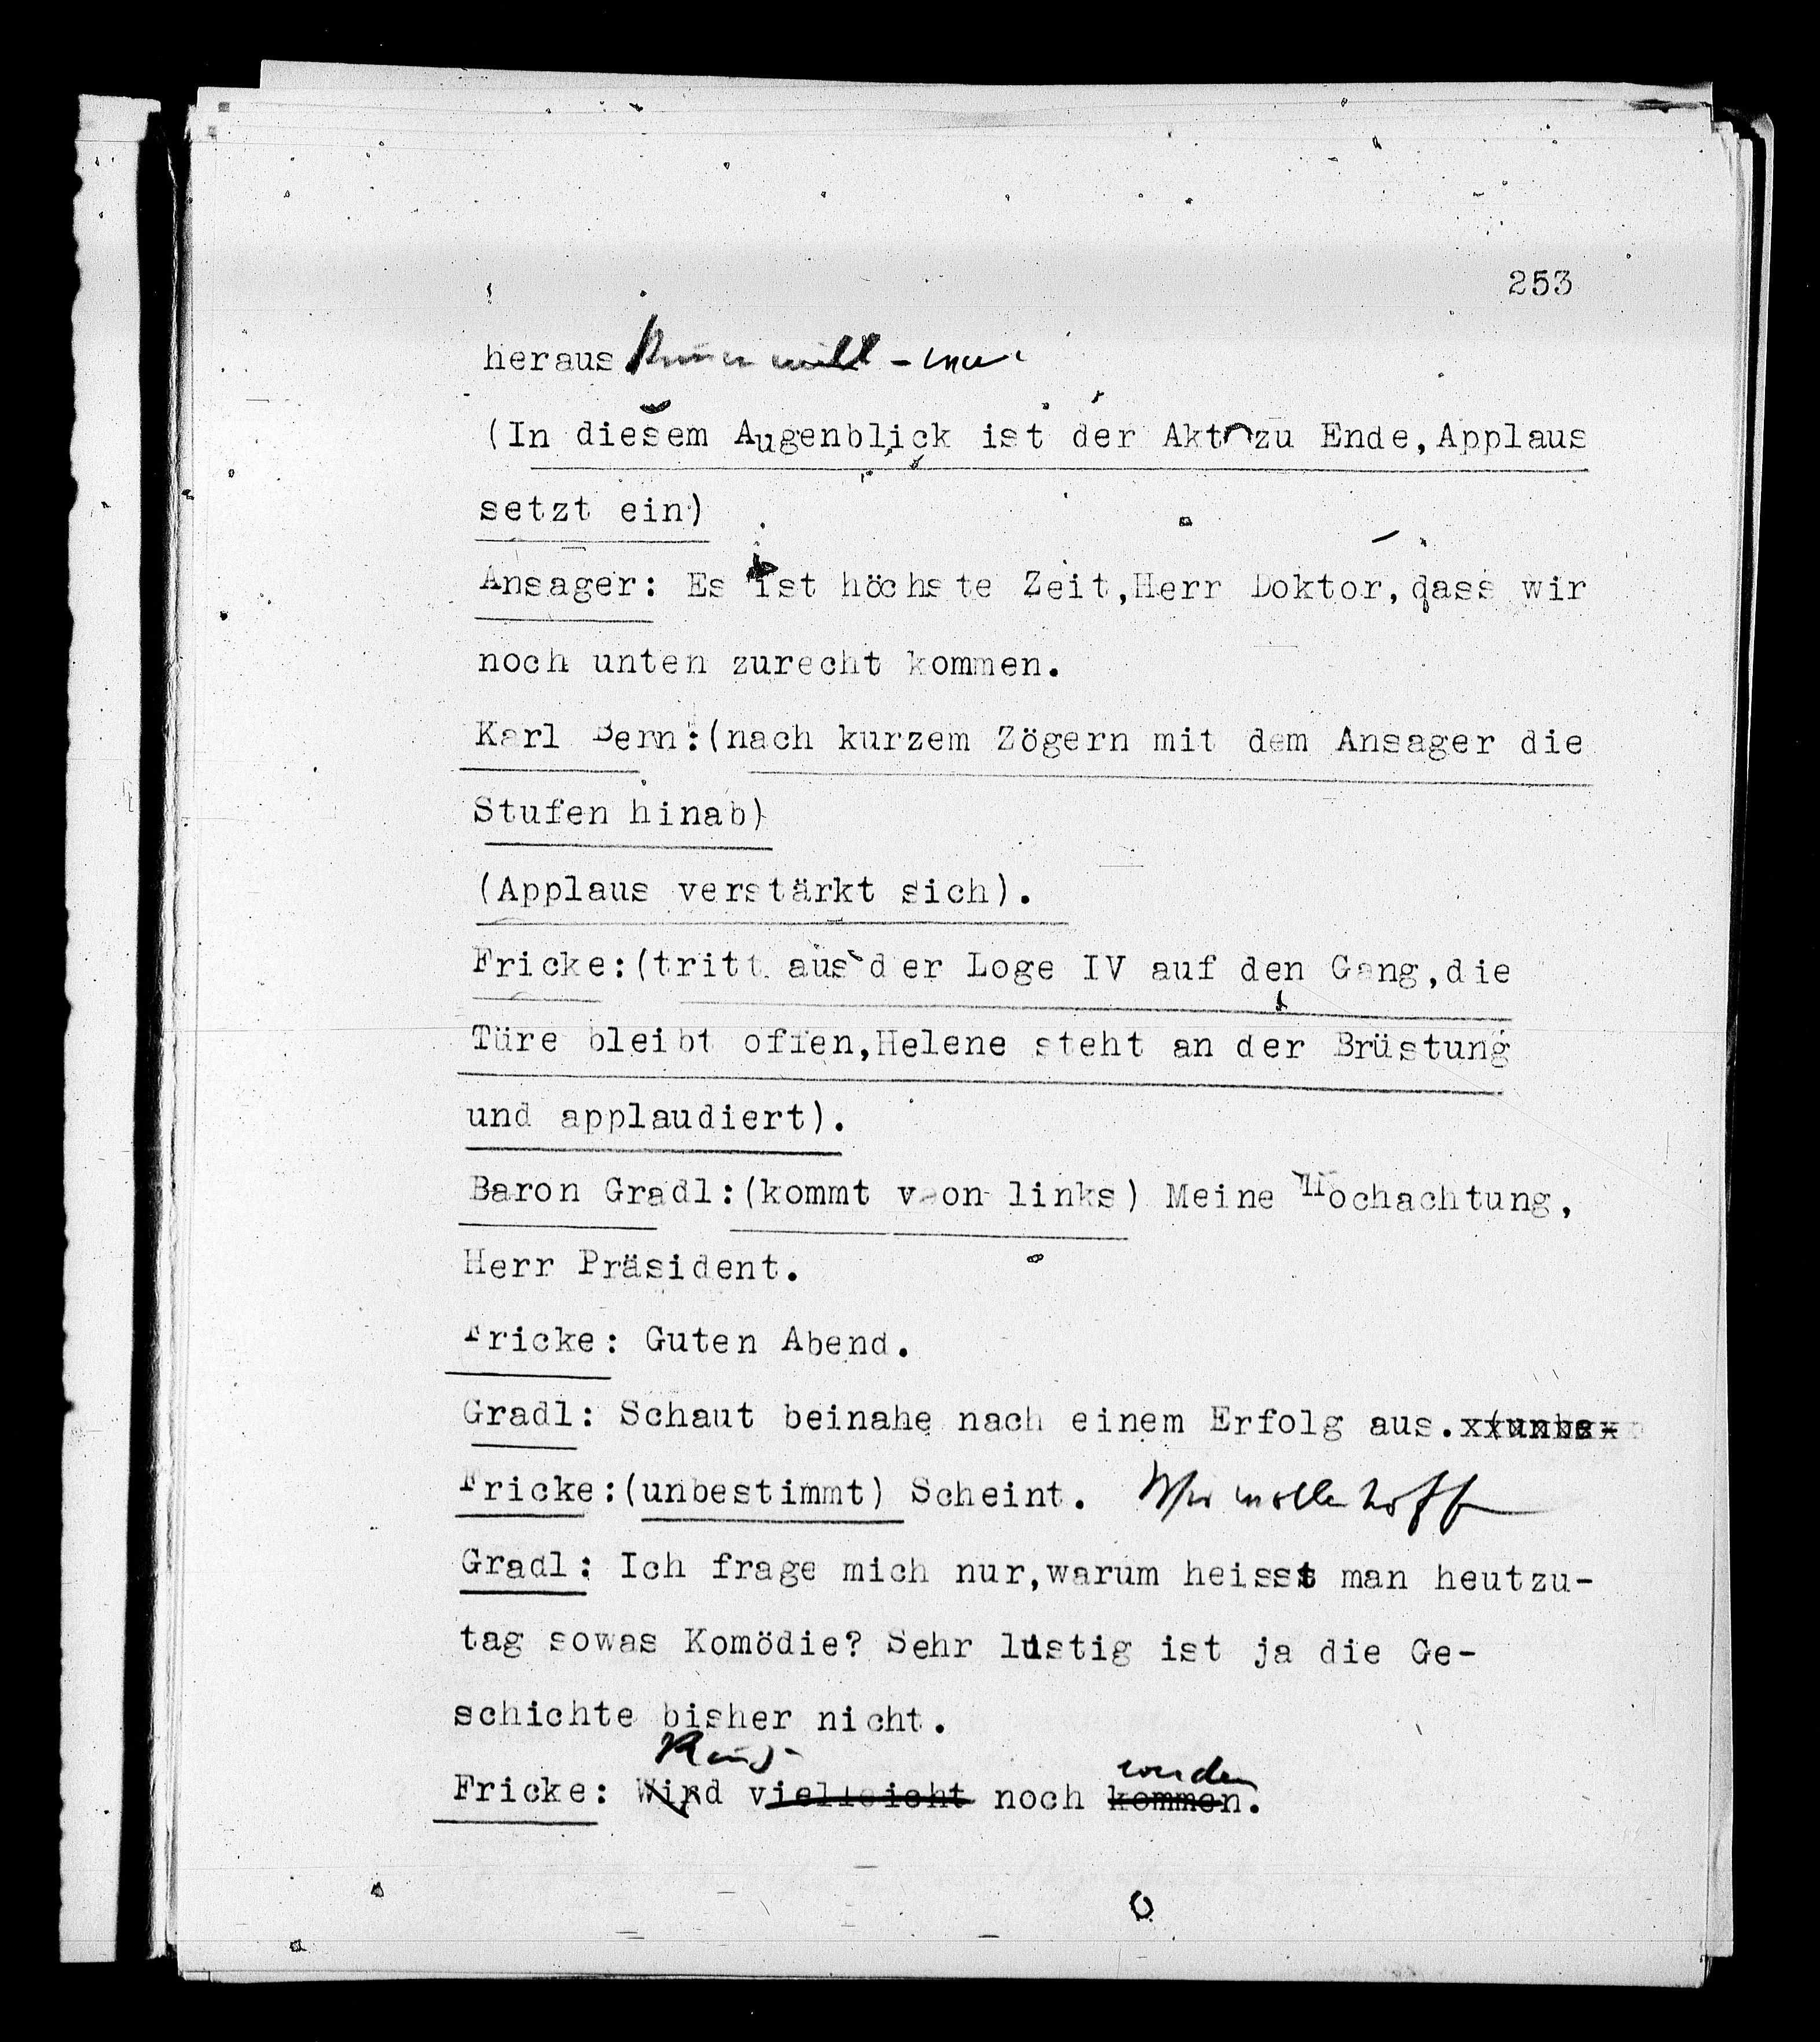 253
heraus
(In diesem Augenblick ist der Akt zu Ende,Applaus
setzt ein)
Ansager: Es ist höchste Zeit,Herr Doktor,dass wir
noch unten zurecht kommen.
Karl Bern:(nach kurzem Zögern mit dem Ansager die
Stufen hinab)
(Applaus verstärkt sich).
Fricke:(tritt aus der Loge IV auf den Gang,die
Türe bleibt offen,Helene steht an der Brüstung
und applaudiert).
Baron Gradl:(kommt von links) Meine Hochachtung,
Herr Präsident.
Fricke: Guten Abend.
Gradl: Schaut beinahe nach einem Erfolg aus.
Fricke:(unbestimmt) Scheint. Wir wollen hoffen
Gradl: Ich frage mich nur,warum heisst man heutzu-
tag sowas Komödie? Sehr lustig ist ja die Ge-
schichte bisher nicht.
werden
Fricke: Wird vielleicht noch kommen.